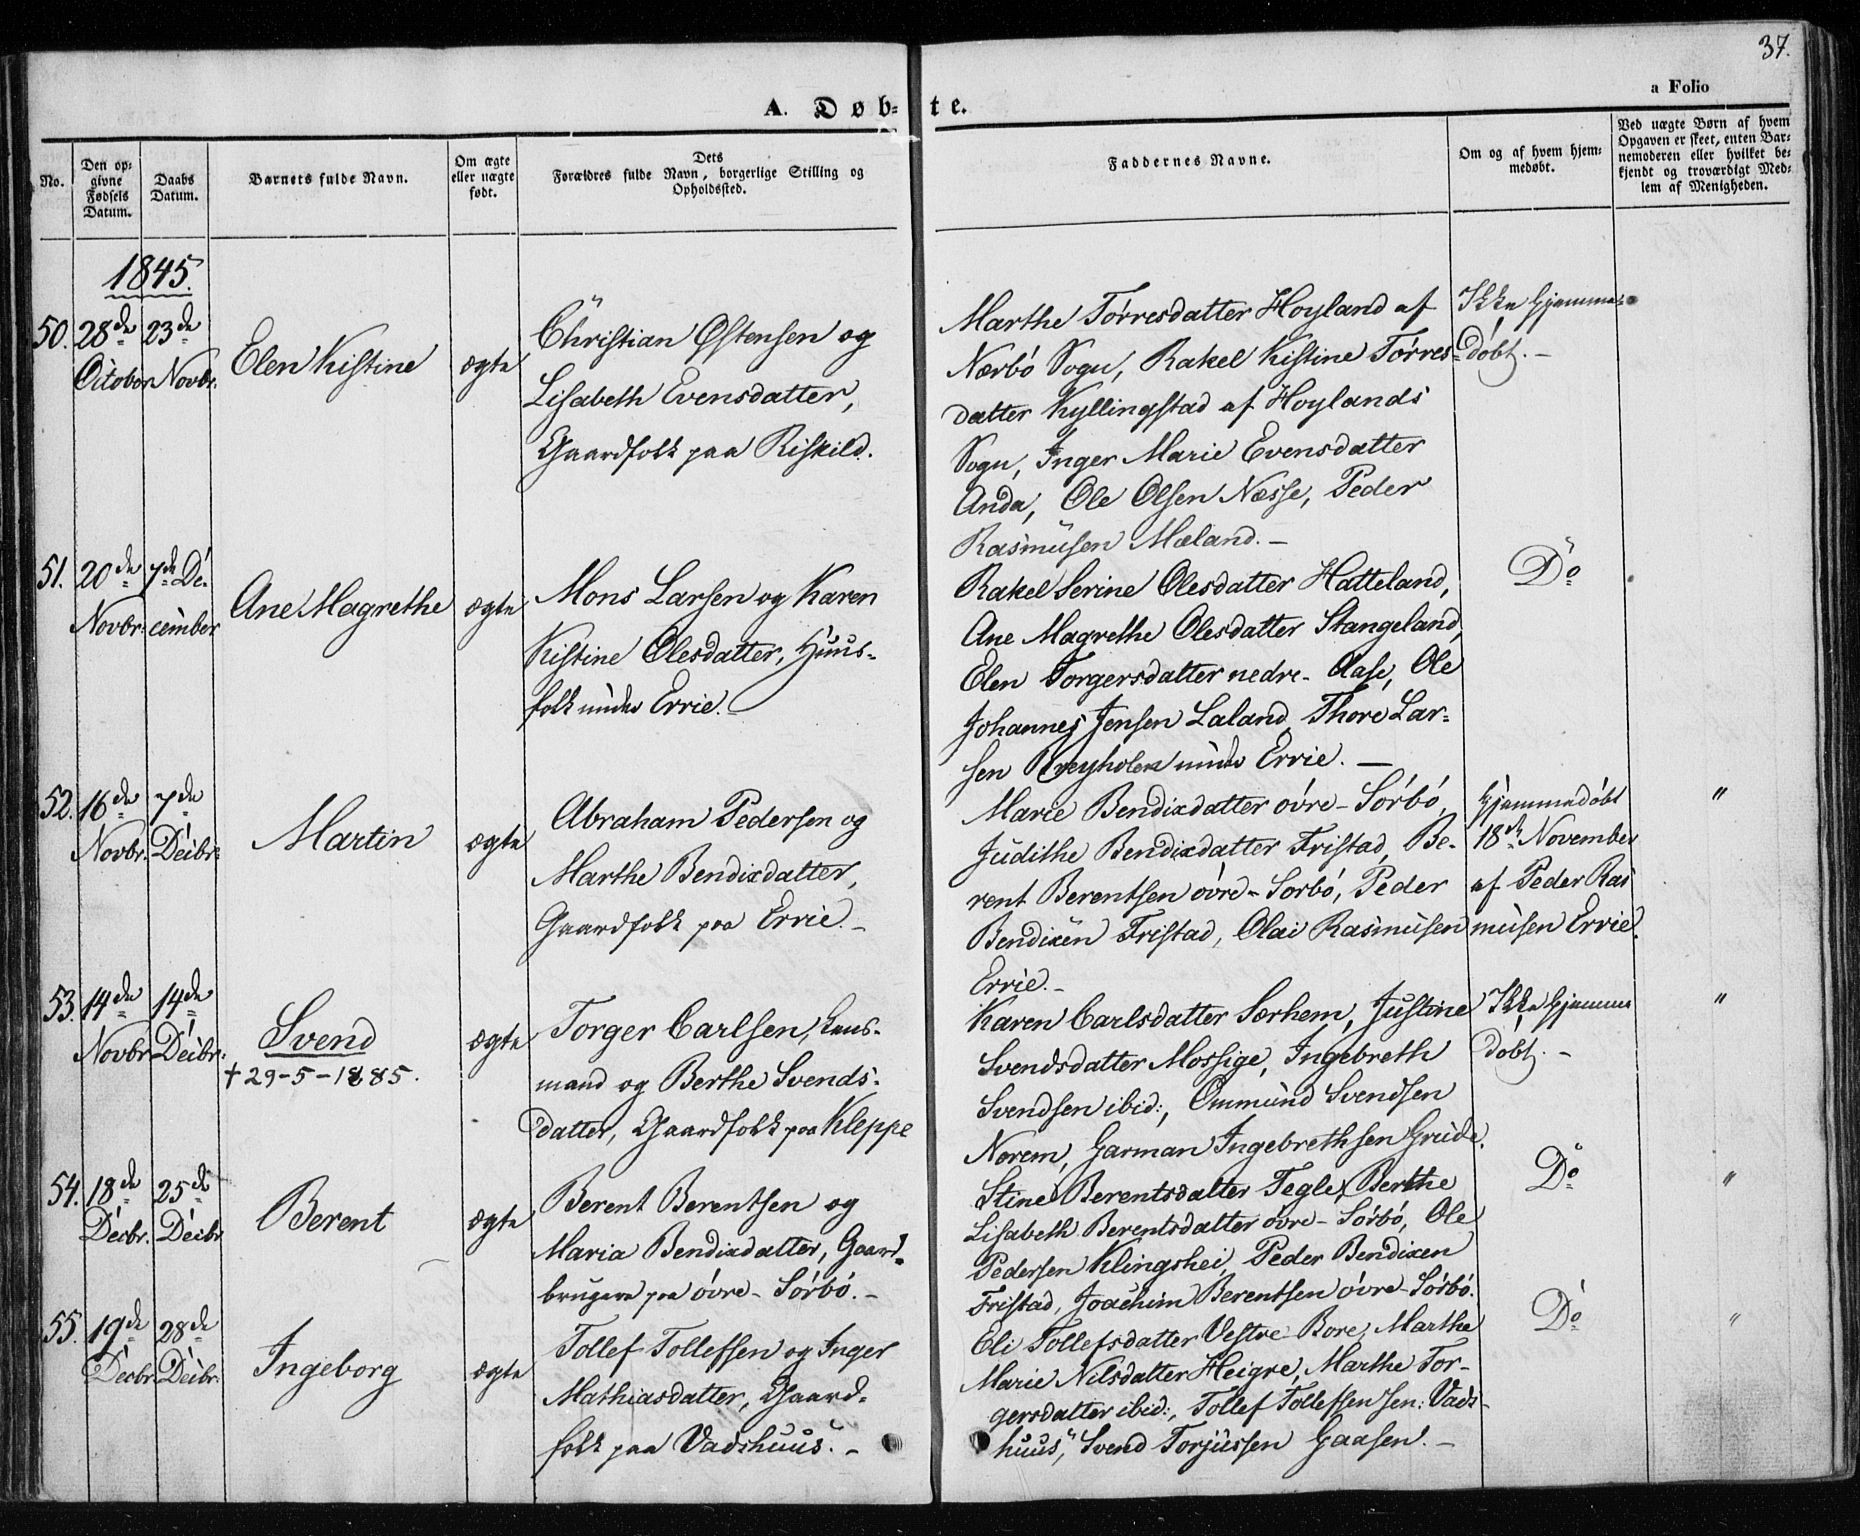 37.
a Folio
A. Døb-te.
No.
Den op-
givne
Fødsels
Datum.
Daabs
Datum.
Barnets fulde Navn.
Om ægte
eller uægte
født.
Dets
Forældres fulde Navn, borgerlige Stilling og
Opholdssted.
Faddernes Navne.
Om og af hvem hjem-
medøbt.
Ved uægte Børn af hvem
Opgaven er skeet, enten Bar-
nemoderen eller hvilket be-
kjendt og troværdigt Med-
lem af Menigheden.
1845.
50. 28de October
23de Novbr.
Elen Kistine
ægte
Christian Østensen og
Lisabeth Evensdatter,
Gaardfolk paa Riskild.
Marthe Tørresdatter Hoyland af
Nærbø Sogn, Rakel Kistine Tørres-
datter Kyllingstad af Hoylands
Sogn, Inger Marie Evensdatter
Anda, Ole Olsen Næsse, Peder
Rasmusen Mæland. –
Ikke hjemme-
døbt. –
51. 20de Novbr.
7de De-
cember
Ane Magrethe
ægte
Mons Larsen og Karen
Kistine Olesdatter, Huus-
folk under Errie. –
Rakel Serine Olesdatter Hatteland,
Ane Magrethe Olesdatter Stangeland,
Elen Torgersdatter nedre-Aase, Ole
Johannes Jensen Laland, Thore Lar-
sen under Errie. –
Do
52. 16de Novbr.
7de Decbr.
Martin
ægte
Abraham Pedersen og
Marthe Bendixdatter,
Gaardfolk paa Errie. –
Marie Bendixdatter øvre-Sørbø,
Judithe Bendixdatter Fristad, Be-
rent Berentsen øvre-Sørbø, Peder
Bendixen Fristad, Olai Rasmusen
Errie. –
Hjemmedøbt
18de November
af Peder Ras
musen Errie.
"
53. 14de Novbr.
14de Decbr.
Svend
† 29-5-1885.
ægte
Torger Carlsen, Lens-
mand og Berthe Svends-
datter, Gaardfolk paa Kleppe
Karen Carlsdatter Særhem, Justine
Svendsdatter Mossige, Ingebreth
Svendsen ibid:, Ommund Svendsen
Norem, Garman Ingebrethsen Grude.
Ikke hjemme
døbt. –
"
54. 18de Decbr.
25de Decbr.
Berent
ægte
Berent Berentsen og
Maria Bendixdatter, Gaard-
brugere paa øvre-Sørbø. –
Stine Berentsdatter Tegle, Berthe
Lisabeth Berentsdatter øvre-Sørbø, Ole
Pedersen Klingshei, Peder Bendixen
Fristad, Joachim Berentsen øvre-Sørbø.
Do
"
55. 19de Decbr.
28de Decbr.
Ingeborg
ægte
Tollef Tollefsen og Inger
Mathiasdatter, Gaard-
folk paa Vadshuus. –
Eli Tollefsdatter Vestre Bore, Marthe
Marie Nilsdatter Heigre, Marthe Tor-
gersdatter ibid:, Tollef Tollefsen sen: Vads-
huus, Svend Torjussen Gaasen. –
Do
"